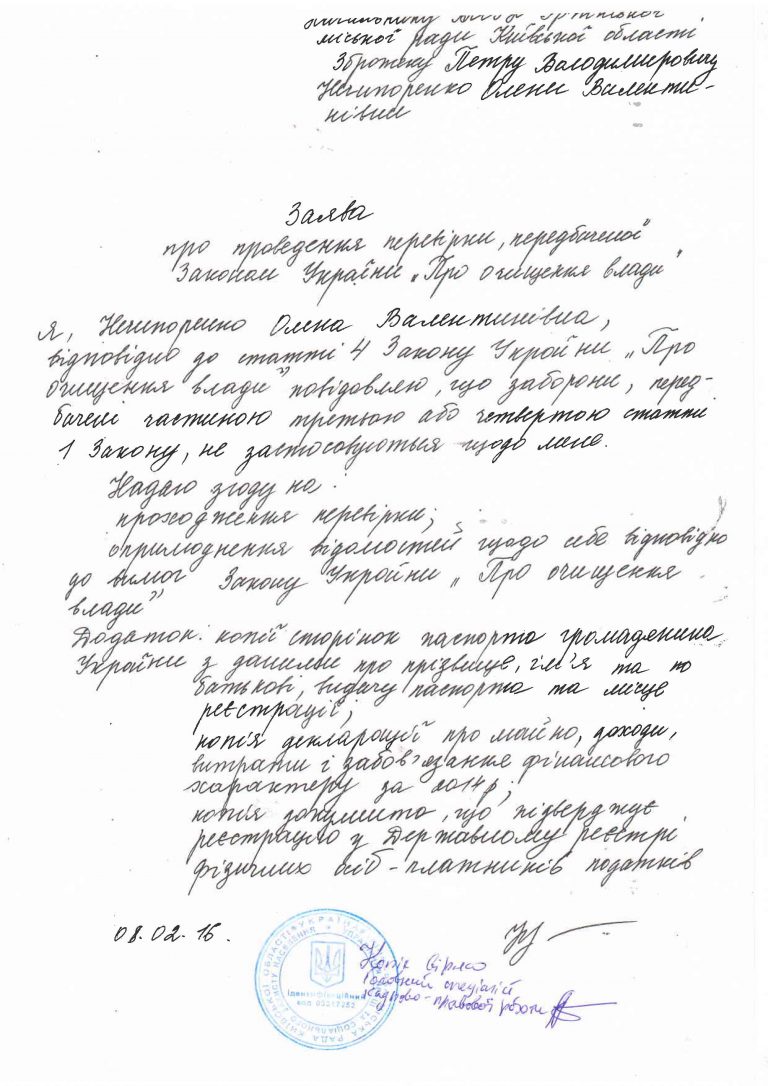 міської ради Київської області
Петру Володимировичу
Нечипоренко Олени Валенти-
нівни
Заява
про проведення перевірки, передбаченої
Законом України „Про очищення влади"
Я, Нечипоренко Олена Валентинівна,
відповідно до статті 4 Закону України „Про
очищення влади" повідомляю, що заборони, перед-
бачені частиною третьою або четвертою статті
1 Закону, не застосовуються щодо мене.
Надаю згоду на:
проходження перевірки;
оприлюднення відомостей щодо себе відповідно
до вимог Закону України „Про очищення
влади"
Додаток: копії сторінок паспорта громадянина
України з даними про прізвище, ім'я та по
батькові, видачу паспорта та місце
реєстрації;
копія декларації про майно, доходи,
витрати і забов'язання фінансового
характеру за 2014р;
копія документа, що підверджує
реєстрацію у Державному реєстрі
фізичних осіб-платників податків
08.02.16.
Копія вірна
Головний спеціаліст
кадрово-правової роботи
Ідентифікаційний
код